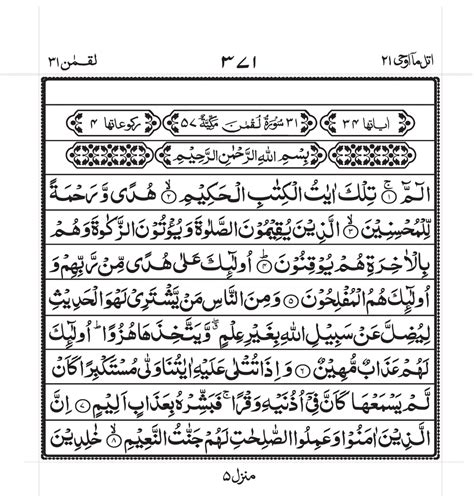 اتل مآ اوحی ۲۱ ۳۷۱ لقمٰن ۳۱
اٰیاتها ۳۴ ۳۱ سُوْرَةُ لُقْمٰنَ مَكِّيَّةٌ ۵۷ رکوعاتها ۴
بِسْمِ اللّٰهِ الرَّحْمٰنِ الرَّحِيْمِ
الٓمّٓ ۚ﴿۱﴾ تِلْكَ اٰيٰتُ الْكِتٰبِ الْحَكِيْمِ ۙ﴿۲﴾ هُدًى وَّرَحْمَةً
لِّلْمُحْسِنِيْنَ ۙ﴿۳﴾ الَّذِيْنَ يُقِيْمُوْنَ الصَّلٰوةَ وَيُؤْتُوْنَ الزَّكٰوةَ وَهُمْ
بِالْاٰخِرَةِ هُمْ يُوْقِنُوْنَ ؕ﴿۴﴾ اُولٰٓئِكَ عَلٰى هُدًى مِّنْ رَّبِّهِمْ وَ
اُولٰٓئِكَ هُمُ الْمُفْلِحُوْنَ ﴿۵﴾ وَمِنَ النَّاسِ مَنْ يَّشْتَرِيْ لَهْوَ الْحَدِيْثِ
لِيُضِلَّ عَنْ سَبِيْلِ اللّٰهِ بِغَيْرِ عِلْمٍ ۖۗ وَّيَتَّخِذَهَا هُزُوًا ؕ اُولٰٓئِكَ
لَهُمْ عَذَابٌ مُّهِيْنٌ ﴿۶﴾ وَاِذَا تُتْلٰى عَلَيْهِ اٰيٰتُنَا وَلّٰى مُسْتَكْبِرًا كَاَنْ
لَّمْ يَسْمَعْهَا كَاَنَّ فِيْٓ اُذُنَيْهِ وَقْرًا ۚ فَبَشِّرْهُ بِعَذَابٍ اَلِيْمٍ ﴿۷﴾ اِنَّ
الَّذِيْنَ اٰمَنُوْا وَعَمِلُوا الصّٰلِحٰتِ لَهُمْ جَنّٰتُ النَّعِيْمِ ۙ﴿۸﴾ خٰلِدِيْنَ
منزل ۵